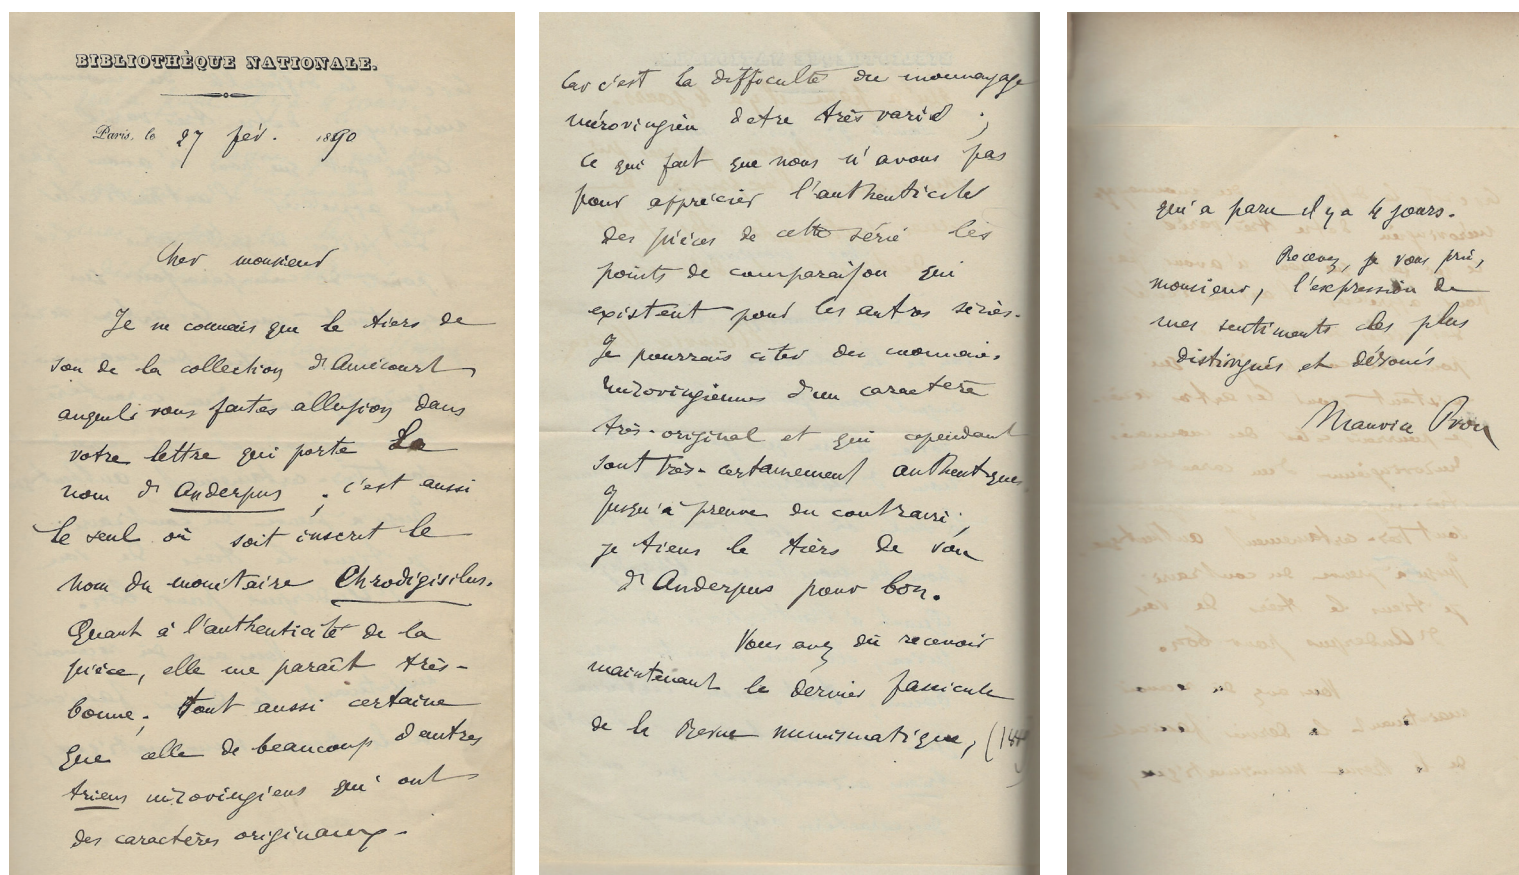 BIBLIOTHÈQUE NATIONALE.
Paris, le 27 fév. 1890
Cher monsieur
Je ne connais que le tiers de
sou de la collection d'Amécourt
auquel vous faites allusion dans
votre lettre qui porte le
nom d'Anderpus ; c'est aussi
le seul où soit inscrit le
nom du monétaire Chrodigisilus.
Quant à l'authenticité de la
pièce, elle me paraît très-
bonne ; tout aussi certaine
que celle de beaucoup d'autres
triens mérovingiens qui ont
des caractères originaux.
Car c'est la difficulté du monnayage
mérovingien d'etre très varié ;
ce qui fait que nous n'avons pas
pour apprécier l'authenticité
des pièces de cette série les
points de comparaison qui
existent pour les autres séries.
Je pourrais citer des monnaies
mérovingiennes d'un caractère
très-original et qui cependant
sont très-certainement authentiques.
Jusqu'à preuve du contraire,
je tiens le tiers de sou
d'Anderpus pour bon.
Vous avez dû recevoir
maintenant le dernier fascicule
de la Revue numismatique, (1889)
qui a paru il y a 4 jours.
Recevez, je vous prie,
monsieur, l'expression de
mes sentiments les plus
distingués et dévoués
Maurice Prou